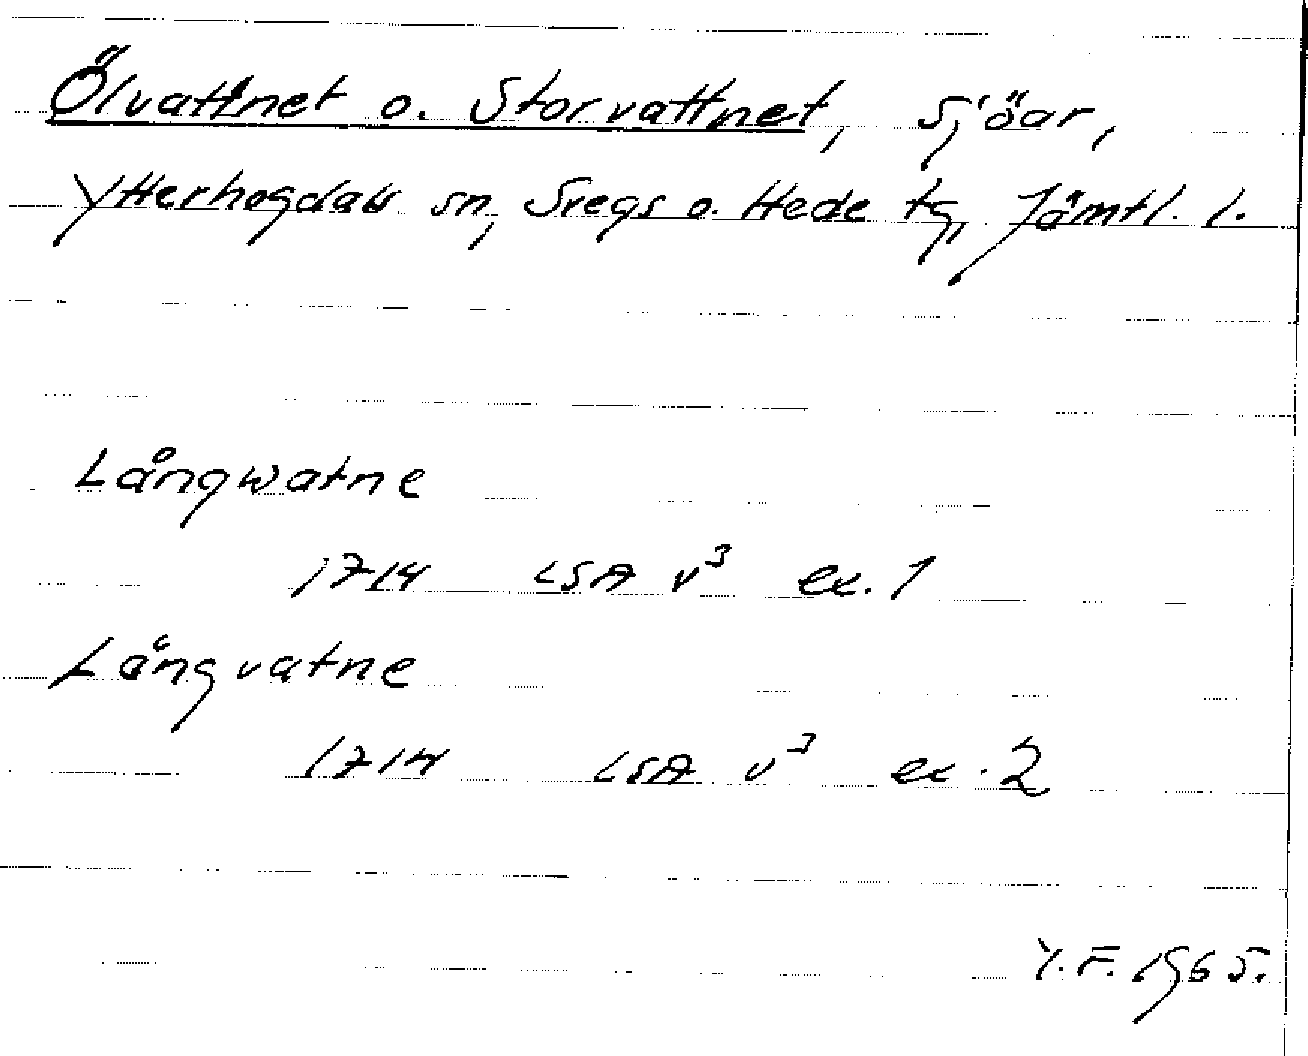 Ölvattnet o. Storvattnet, sjöar,
Ytterhogdals sn, Svegs o. Hede tg, Jämtl. l.
Långwatne
1714 LSA v³ ex. 1
Långvatne
1714 LSA v³ ex. 2
Y. F. 1965.